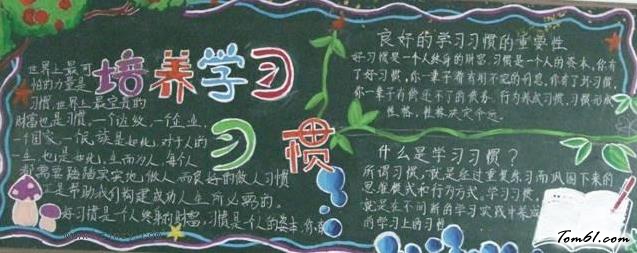 培养学习
习惯
世界上最可
怕的力量是
习惯,世界上最宝贵的
财富也是习惯,一个达效,一个企业,
一个国家,一个民族是如此,对于人的
一生,也是如此,生而为人,每个人
都需要踏踏实实地做人,而良好的做人习惯
正是帮助我们构建成功人生所必需的。
好习惯是一个人终身的财富,习惯是一个人的资本,你有
良好的学习习惯的重要性
好习惯是一个人终身的财富,习惯是一个人的资本,你有
了好习惯,你一辈子都有用不完的利息,你有了坏习惯,
你一辈子有偿还不了的债务。行为养成习惯,习惯形成
性格,性格决定命运。
什么是学习习惯?
所谓习惯,就是经过重复练习而巩固下来的
思维模式和行为方式。学习习惯,
就是在不间断的学习实践中养成
的学习上的习惯
Tom61.com